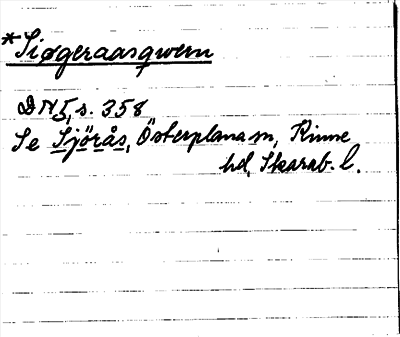 *Siøgeraasqwern
DN 5, s. 358
Se Sjörås, Österplana sn, Kinne
hd, Skarab. l.